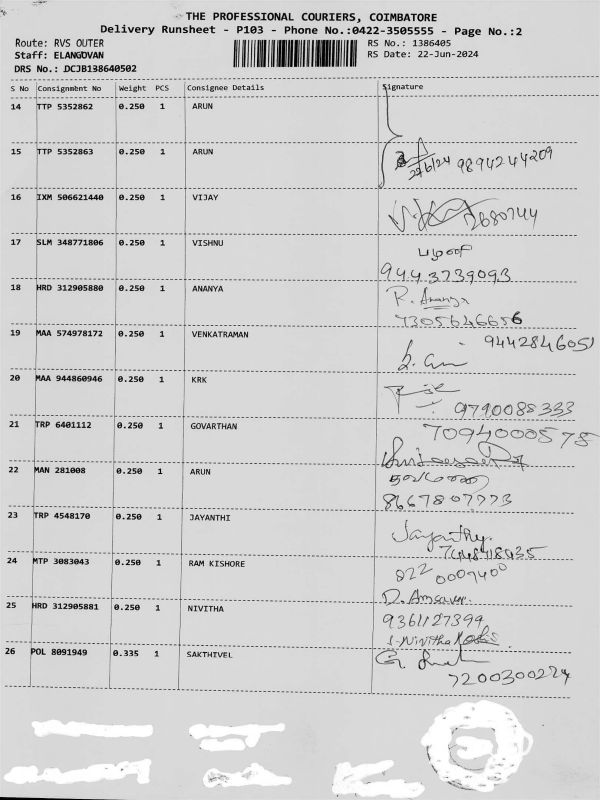 THE PROFESSIONAL COURIERS, COIMBATORE
Delivery Runsheet - P103 - Phone No.:0422-3505555 - Page No.:2
Route: RVS OUTER RS No.: 1386405
Staff: ELANGOVAN RS Date: 22-Jun-2024
DRS No.: DCJB138640502
S No Consignment No Weight PCS Consignee Details Signature
14 TTP 5352862 0.250 1 ARUN
15 TTP 5352863 0.250 1 ARUN
22/6/24 9894244209
16 IXM 506621440 0.250 1 VIJAY
17 SLM 348771806 0.250 1 VISHNU
பழனி
9443739093
18 HRD 312905880 0.250 1 ANANYA
R. Ananya
7305646656
19 MAA 574978172 0.250 1 VENKATRAMAN
9442846051
20 MAA 944860946 0.250 1 KRK
9790085333
21 TRP 6401112 0.250 1 GOVARTHAN
7094000575
22 MAN 281008 0.250 1 ARUN
8667807773
23 TRP 4548170 0.250 1 JAYANTHI
Jayanthy.
7448418435
24 MTP 3083043 0.250 1 RAM KISHORE
822 0009400
25 HRD 312905881 0.250 1 NIVITHA
9361127399
26 POL 8091949 0.335 1 SAKTHIVEL
7200300224